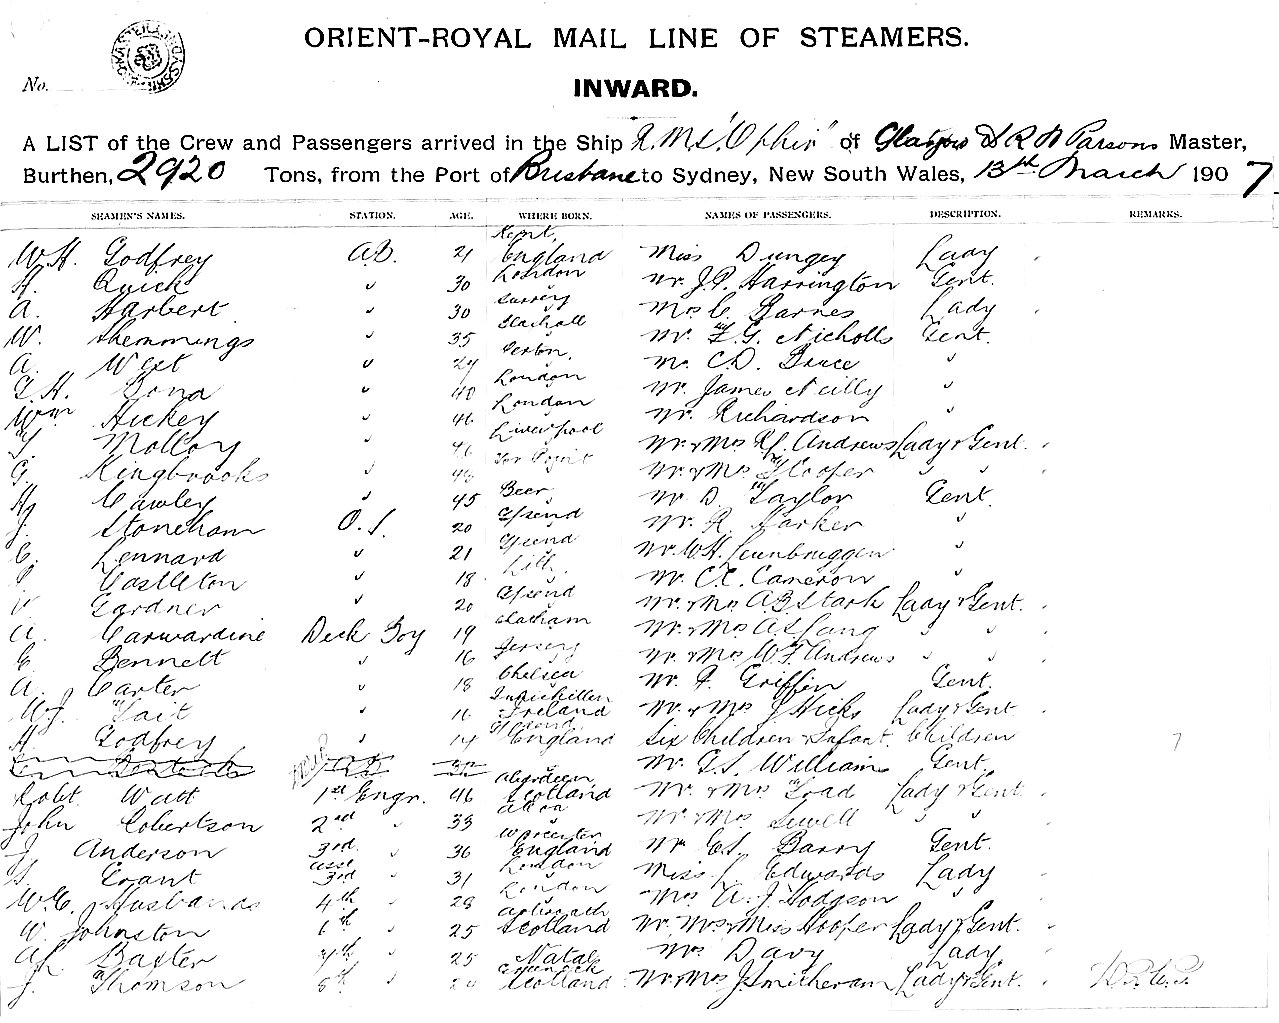 ORIENT-ROYAL MAIL LINE OF STEAMERS.
No.
INWARD.
A LIST of the Crew and Passengers arrived in the Ship R.M.S. "Ophir" of Glasgow R N Parsons Master,
Burthen, 2920 Tons, from the Port of Brisbane to Sydney, New South Wales, 13th March 1907
SEAMEN'S NAMES. STATION. AGE. WHERE BORN. NAMES OF PASSENGERS. DESCRIPTION. REMARKS.
W.H. Godfrey A.B. 21 Kent, England Miss Dungey Lady
H. Quick " 30 London Mr. J.P. Harrington Gent.
A. Harbert " 30 Surrey Mrs C. Barnes Lady
W. Hemmings " 35 Mr. F.G. Nicholls Gent.
A. West " Mr. C.D. Bruce "
Bond " 40 London Mr. James Neilly "
Wm Hickey " 46 London Mr. Richardson "
Molloy " 46 Liverpool Mr. & Mrs Andrews Lady & Gent.
G. Kingbrooks " 46 Mr. & Mrs Cooper " "
Cawley " 45 Beer Mr. D. Taylor Gent.
J. Stoneham O.S. 20 G/send Mr. R. Harker "
C. Lennard " 21 G/send Mr. W.H. "
Castleton " 18 Mr. C.E. Cameron "
Gardner " 20 G/send Mr. & Mrs A.B. Stark Lady & Gent.
A. Carwardine Deck Boy 19 Chatham Mr. & Mrs A.S. Lang " "
E. Bennett " 16 Jersey Mr. & Mrs W.F. Andrews " "
A. Carter " 18 Chelsea Mr. F. Griffin Gent.
W.J. Tait " 16 Ireland Mr. & Mrs J Hicks Lady & Gent
H. Godfrey " 14 G/send England Six Children & Infant. Children 7
Mr. G.S. Williams Gent.
Robt Watt 1st Engr. 46 Aberdeen Scotland Mr. & Mrs Toad Lady & Gent
John Robertson 2nd " 33 Alloa " Mr. & Mrs Sewell " "
J. Anderson 3rd. " 36 Worcester England Mr. C.S. Barry Gent.
Grant Asst 3rd " 31 London Miss Edwards Lady
W.E. Husbands 4th " 28 London Mrs A.J. Hodgson "
W. Johnston 6th " 25 Arbroath Scotland Mr. Mrs & Miss Hooper Lady & Gent.
Baxter 7th " 25 Natal Mrs Davy Lady.
J. Thomson 8th " 24 Greenock Scotland Mr. & Mrs J. Smitheram Lady & Gent.